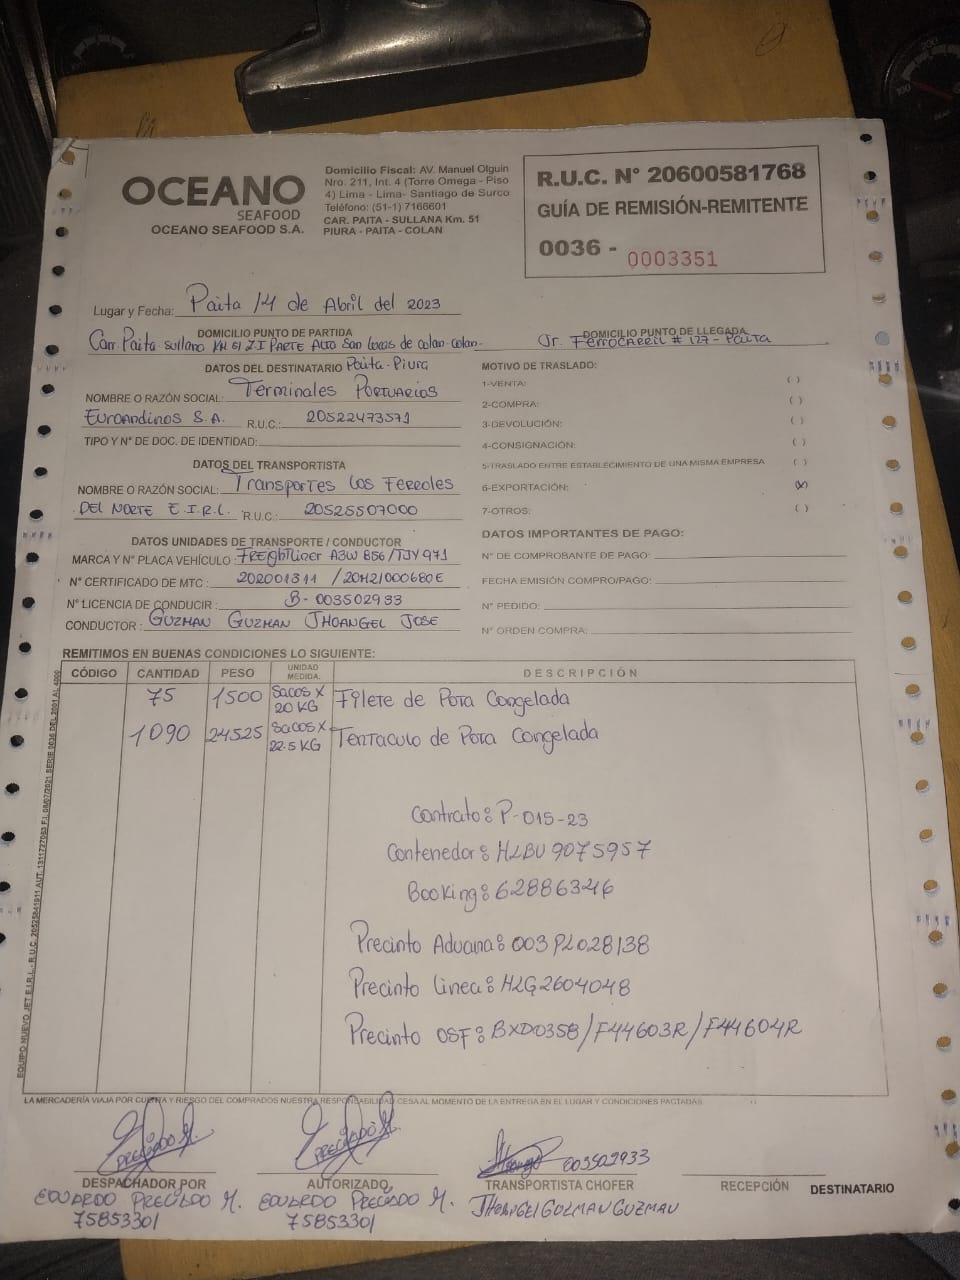 OCEANO
SEAFOOD
OCEANO SEAFOOD S.A.
Domicilio Fiscal: AV. Manuel Olguin
Nro. 211, Int. 4 (Torre Omega - Piso
4) Lima - Lima- Santiago de Surco
Teléfono: (51-1) 7166601
CAR. PAITA - SULLANA Km. 51
PIURA - PAITA - COLAN
R.U.C. N° 20600581768
GUÍA DE REMISIÓN-REMITENTE
0036 - 0003351
Lugar y Fecha: Paita 14 de Abril del 2023
DOMICILIO PUNTO DE PARTIDA
Carr. Paita Sullana KM 51 Z.I PARTE ALTO San Lucas de colan-Colan-
Paita-Piura
DOMICILIO PUNTO DE LLEGADA
Jr. FERROCARRIL # 127 - PAITA
DATOS DEL DESTINATARIO
NOMBRE O RAZÓN SOCIAL: Terminales PORTUARIOS
EUROANDINOS S.A. R.U.C.: 20522473571
TIPO Y N° DE DOC. DE IDENTIDAD:
DATOS DEL TRANSPORTISTA
NOMBRE O RAZÓN SOCIAL: Transportes Los Ferroles
DEL NORTE E.I.R.L. R.U.C.: 20525507000
DATOS UNIDADES DE TRANSPORTE / CONDUCTOR
MARCA Y N° PLACA VEHÍCULO: FREIGHTLINER A3W 856/TJY 971
N° CERTIFICADO DE MTC: 202001311 / 20M21000680E
N° LICENCIA DE CONDUCIR: B-003502933
CONDUCTOR: GUZMAN GUZMAN JHOANGEL JOSE
MOTIVO DE TRASLADO:
1-VENTA: ( )
2-COMPRA: ( )
3-DEVOLUCIÓN: ( )
4-CONSIGNACIÓN: ( )
5-TRASLADO ENTRE ESTABLECIMIENTO DE UNA MISMA EMPRESA ( )
6-EXPORTACIÓN: (X)
7-OTROS: ( )
DATOS IMPORTANTES DE PAGO:
N° DE COMPROBANTE DE PAGO:
FECHA EMISIÓN COMPRO/PAGO:
N° PEDIDO:
N° ORDEN COMPRA:
REMITIMOS EN BUENAS CONDICIONES LO SIGUIENTE:
CÓDIGO CANTIDAD PESO UNIDAD MEDIDA. DESCRIPCIÓN
75 1500 Sacos x 20 KG Filete de Pota Congelada
1090 24525 Sacos x 22.5 KG Tentaculo de Pota Congelada
Contrato: P-015-23
Contenedor: HLBU 9075957
Booking: 62886346
Precinto Aduana: 003PL028138
Precinto Linea: HLG2604048
Precinto OSF: BXD0358/F44603R/F44604R
EQUIPO NUEVO JET E.I.R.L - R.U.C. 20525841911 AUT. 1311727063 F.I. 08/07/2021 SERIE 0036 DEL 2001 AL 4000
LA MERCADERÍA VIAJA POR CUENTA Y RIESGO DEL COMPRADOS NUESTRA RESPONSABILIDAD CESA AL MOMENTO DE LA ENTREGA EN EL LUGAR Y CONDICIONES PACTADAS
PRECIADO M.
DESPACHADOR POR
EDUARDO PRECIADO M.
75853301
PRECIADO M.
AUTORIZADO
EDUARDO PRECIADO M.
75853301
003502933
TRANSPORTISTA CHOFER
JHOANGEL GUZMAN GUZMAN
RECEPCIÓN
DESTINATARIO